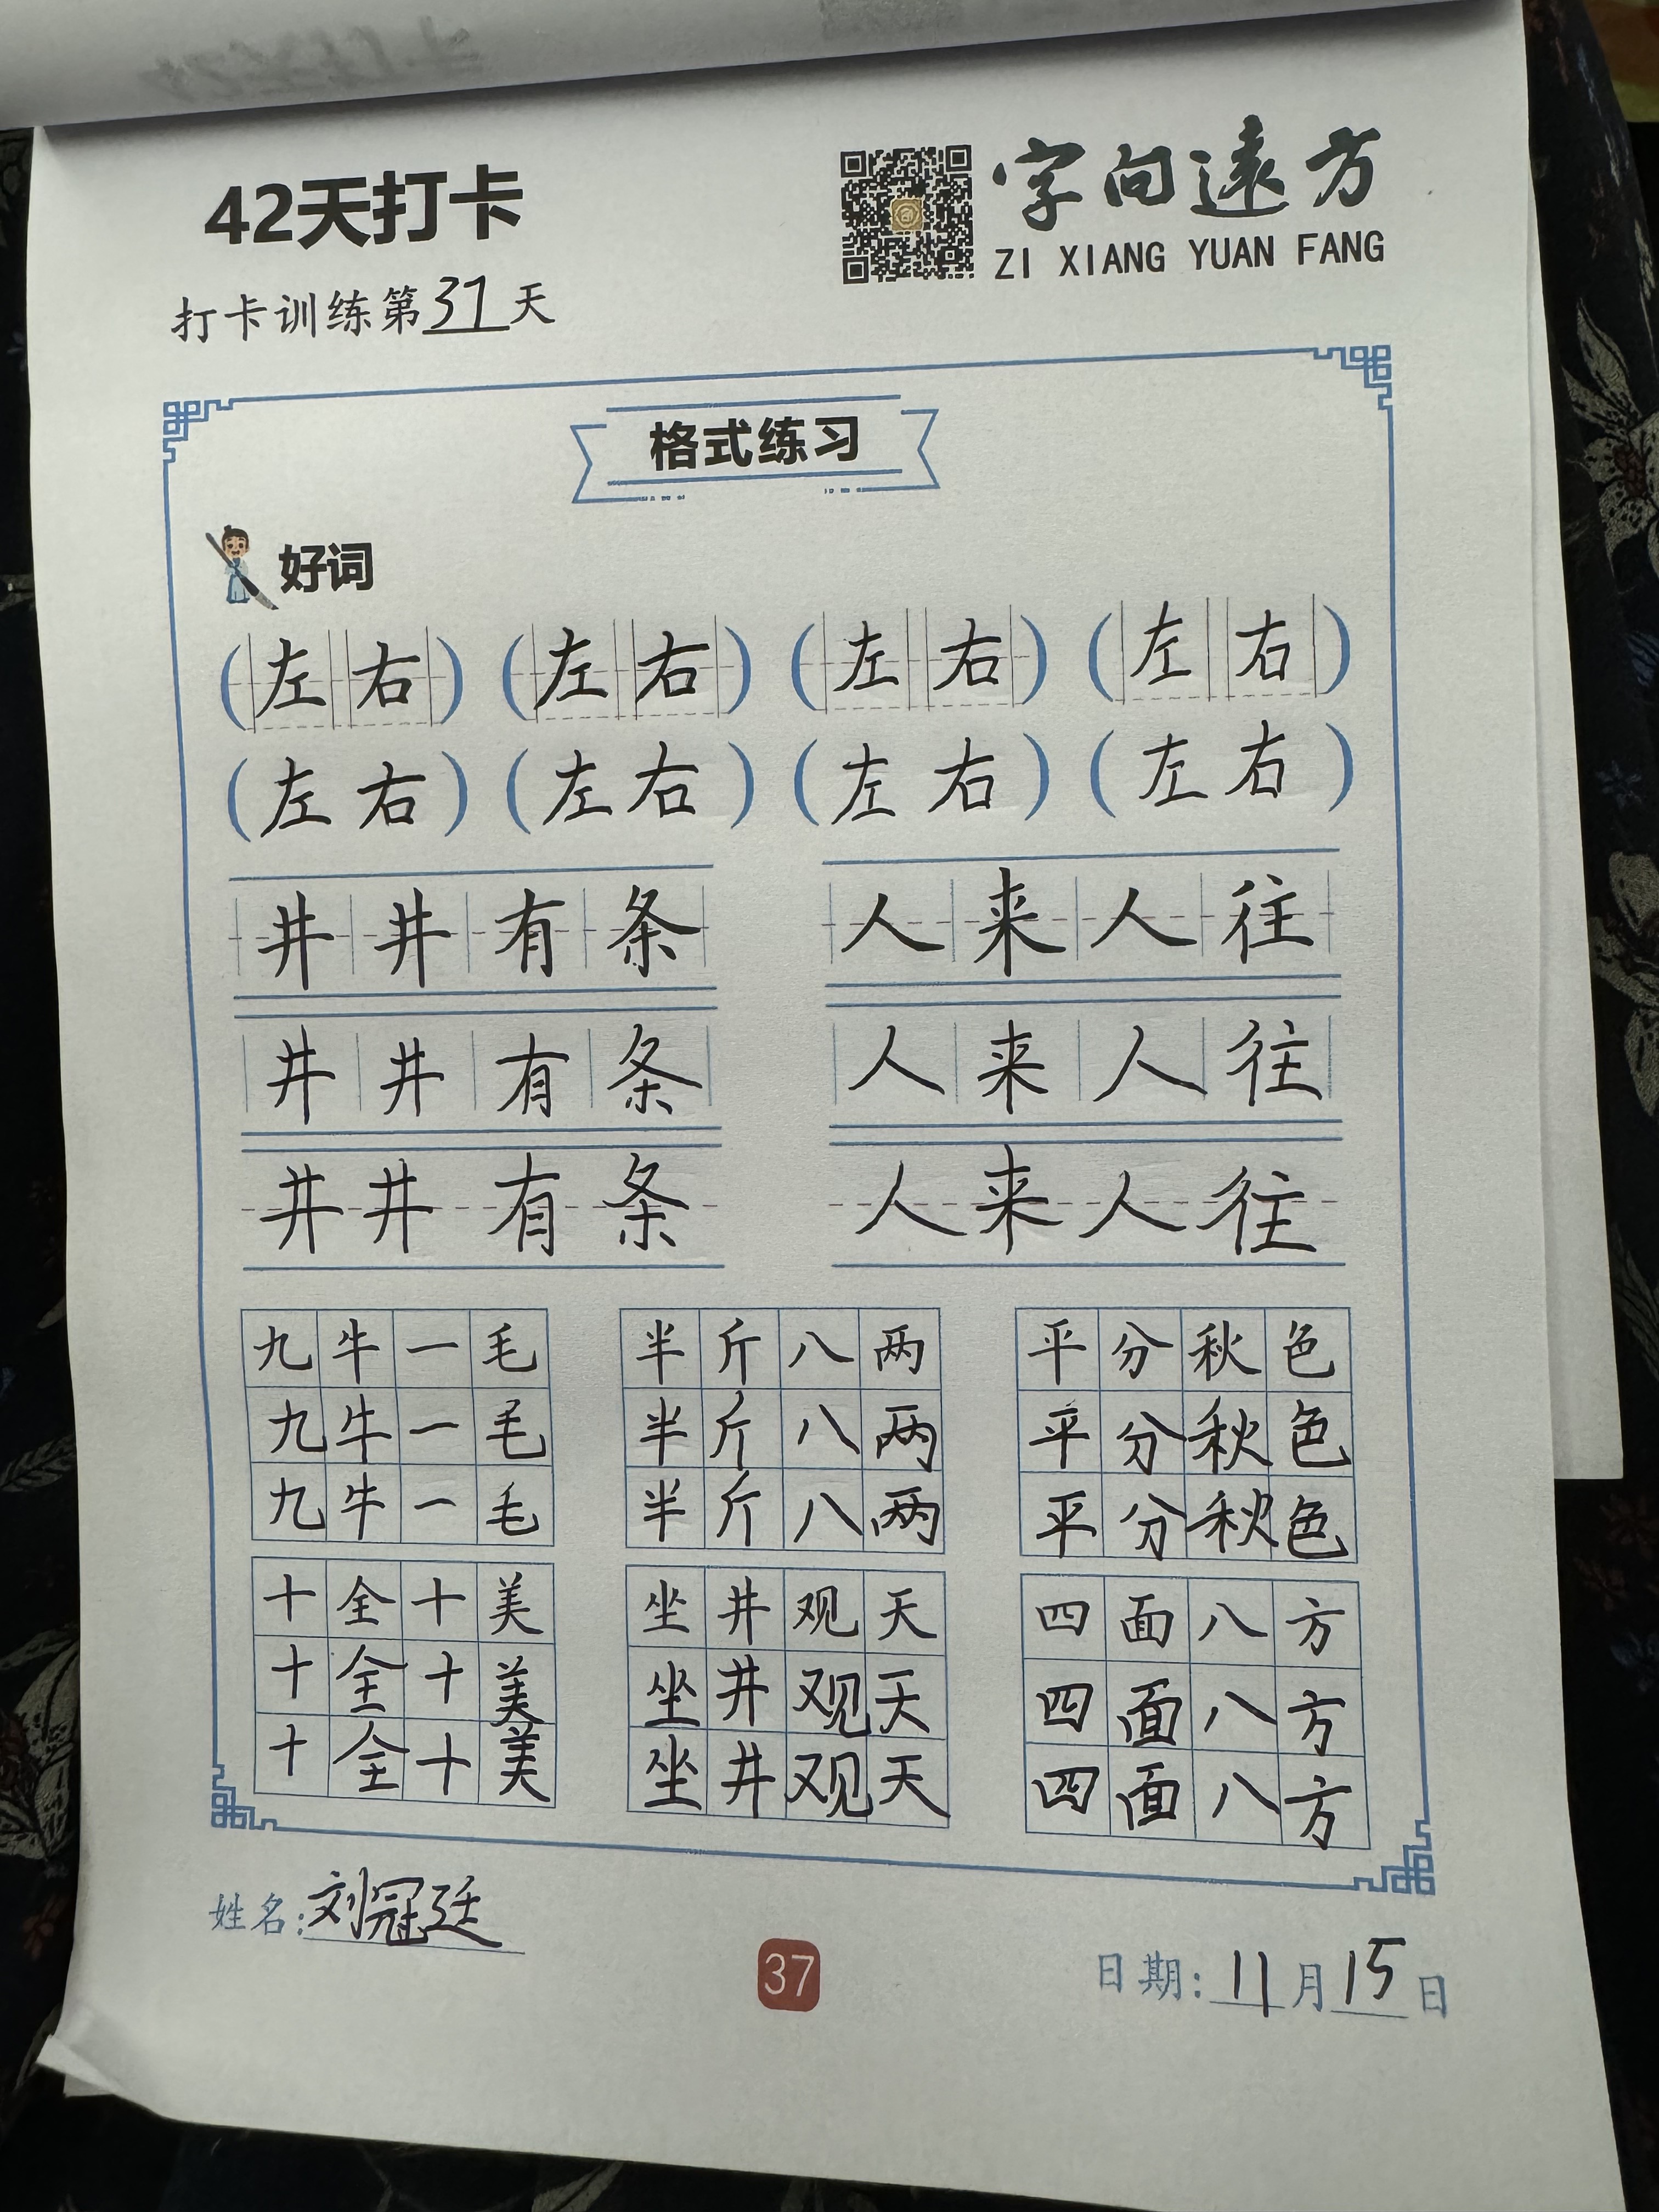 42天打卡
字向遠方
ZI XIANG YUAN FANG
打卡训练第37天
格式练习
好词
(左右) (左右) (左右) (左右)
(左右) (左右) (左右) (左右)
井井有条 人来人往
井井有条 人来人往
井井有条 人来人往
九牛一毛 半斤八两 平分秋色
九牛一毛 半斤八两 平分秋色
九牛一毛 半斤八两 平分秋色
十全十美 坐井观天 四面八方
十全十美 坐井观天 四面八方
十全十美 坐井观天 四面八方
姓名:刘冠廷
37
日期:11月15日